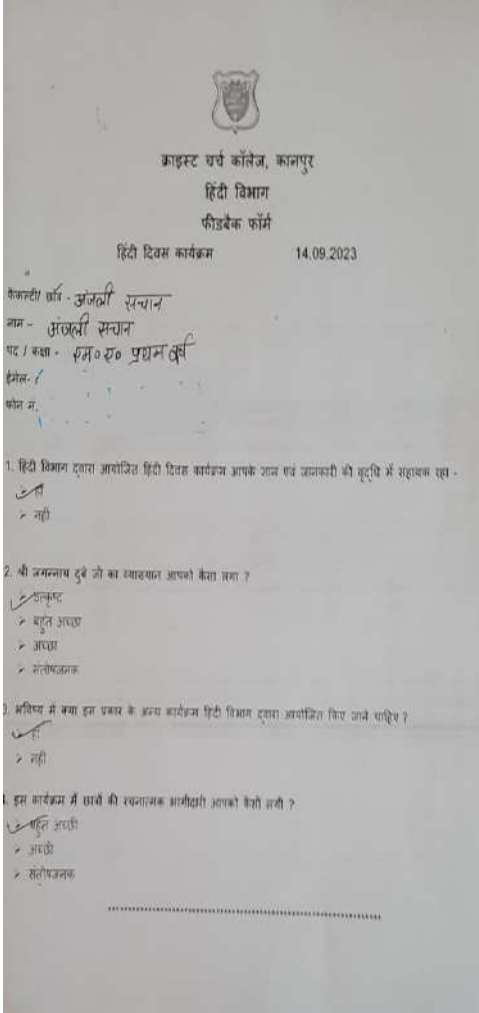 क्राइस्ट चर्च कॉलेज, कानपुर
हिंदी विभाग
फीडबैक फॉर्म
हिंदी दिवस कार्यक्रम 14.09.2023
फैकल्टी/ छात्र - अंजली सचान
नाम - अंजली सचान
पद / कक्षा - एम०ए० प्रथम वर्ष
ईमेल-
फोन नं.
1. हिंदी विभाग द्वारा आयोजित हिंदी दिवस कार्यक्रम आपके ज्ञान एवं जानकारी की वृद्धि में सहायक रहा -
हाँ
नहीं
2. श्री जगन्नाथ दुबे जी का व्याख्यान आपको कैसा लगा ?
उत्कृष्ट
बहुत अच्छा
अच्छा
संतोषजनक
3. भविष्य में क्या इस प्रकार के अन्य कार्यक्रम हिंदी विभाग द्वारा आयोजित किए जाने चाहिए ?
हाँ
नहीं
इस कार्यक्रम में छात्रों की रचनात्मक भागीदारी आपको कैसी लगी ?
बहुत अच्छी
अच्छी
संतोषजनक